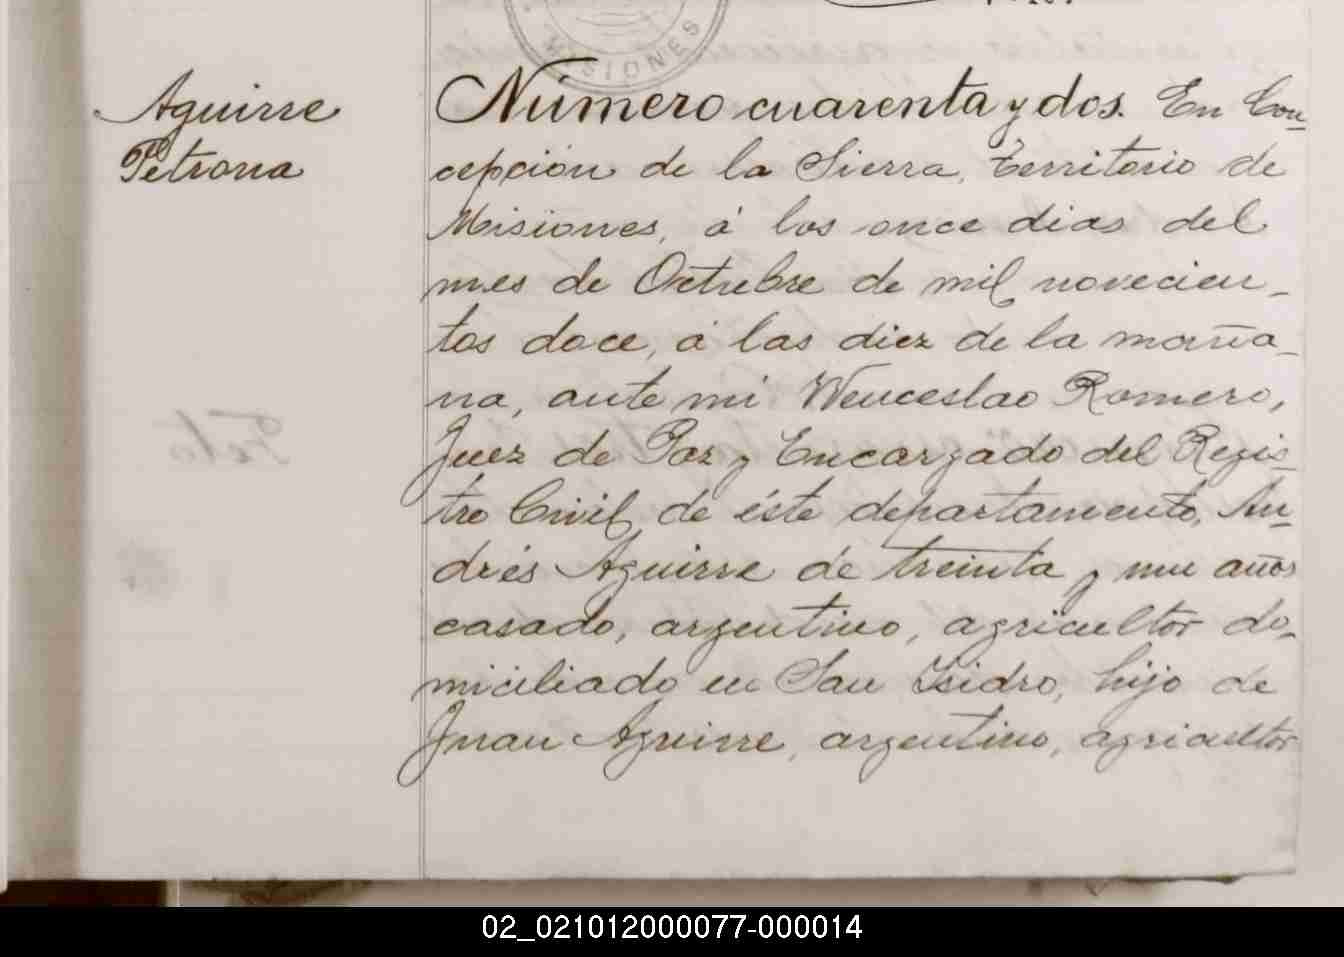 MISIONES
Aguirre
Petrona
Número cuarenta y dos. En Con-
cepción de la Sierra, Territorio de
Misiones, á los once dias del
mes de Octubre de mil novecien-
tos doce, á las diez de la maña-
na, ante mi Wenceslao Romero,
Juez de Paz y Encargado del Regis-
tro Civil de éste departamento, An-
drés Aguirre de treinta y un años
casado, argentino, agricultor do-
miciliado en San Isidro, hijo de
Juan Aguirre, argentino, agricultor
02_021012000077-000014